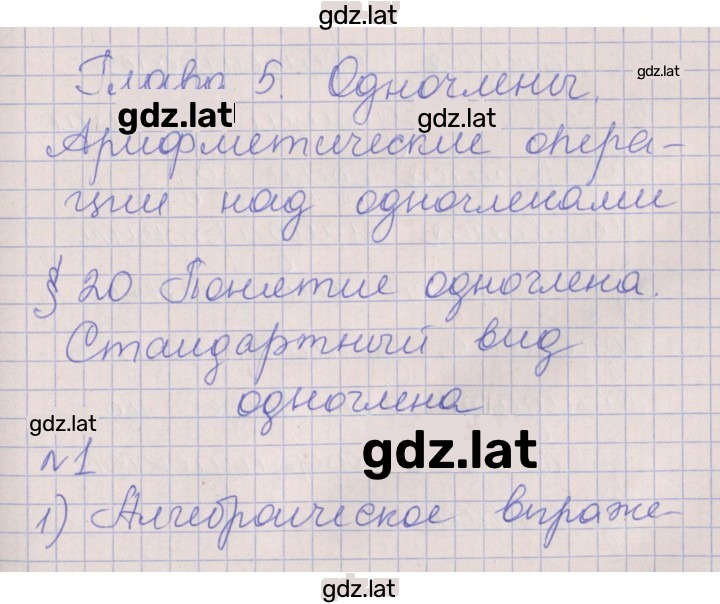 gdz.lat
Глава 5. Одночлены.
gdz.lat
gdz.lat
gdz.lat
Арифметические опера-
ции над одночленами
§ 20 Понятие одночлена.
Стандартный вид
одночлена
gdz.lat
gdz.lat
№1
1) Алгебраическое выраже-
gdz.lat